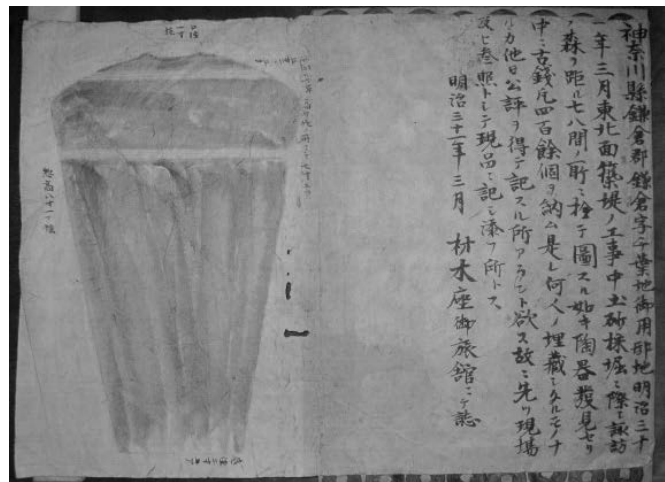 神奈川縣鎌倉郡鎌倉字千葉地御用邸地明治三十
一年三月東北面築堤ノ工事中土砂採堀ニ際シ諏訪
ノ森ヲ距ル七八間ノ所ニ於テ圖スル如キ陶器發見セリ
中ニ古錢凡四百餘個ヲ納ム是レ何人ノ埋藏シタルモノナ
ルカ他日公評ヲ得テ記スル所アラント欲ス故ニ先ツ現場
及ヒ參照トシテ現品ニ記シ添フ所トス
明治三十一年三月 材木座御旅館ニテ誌